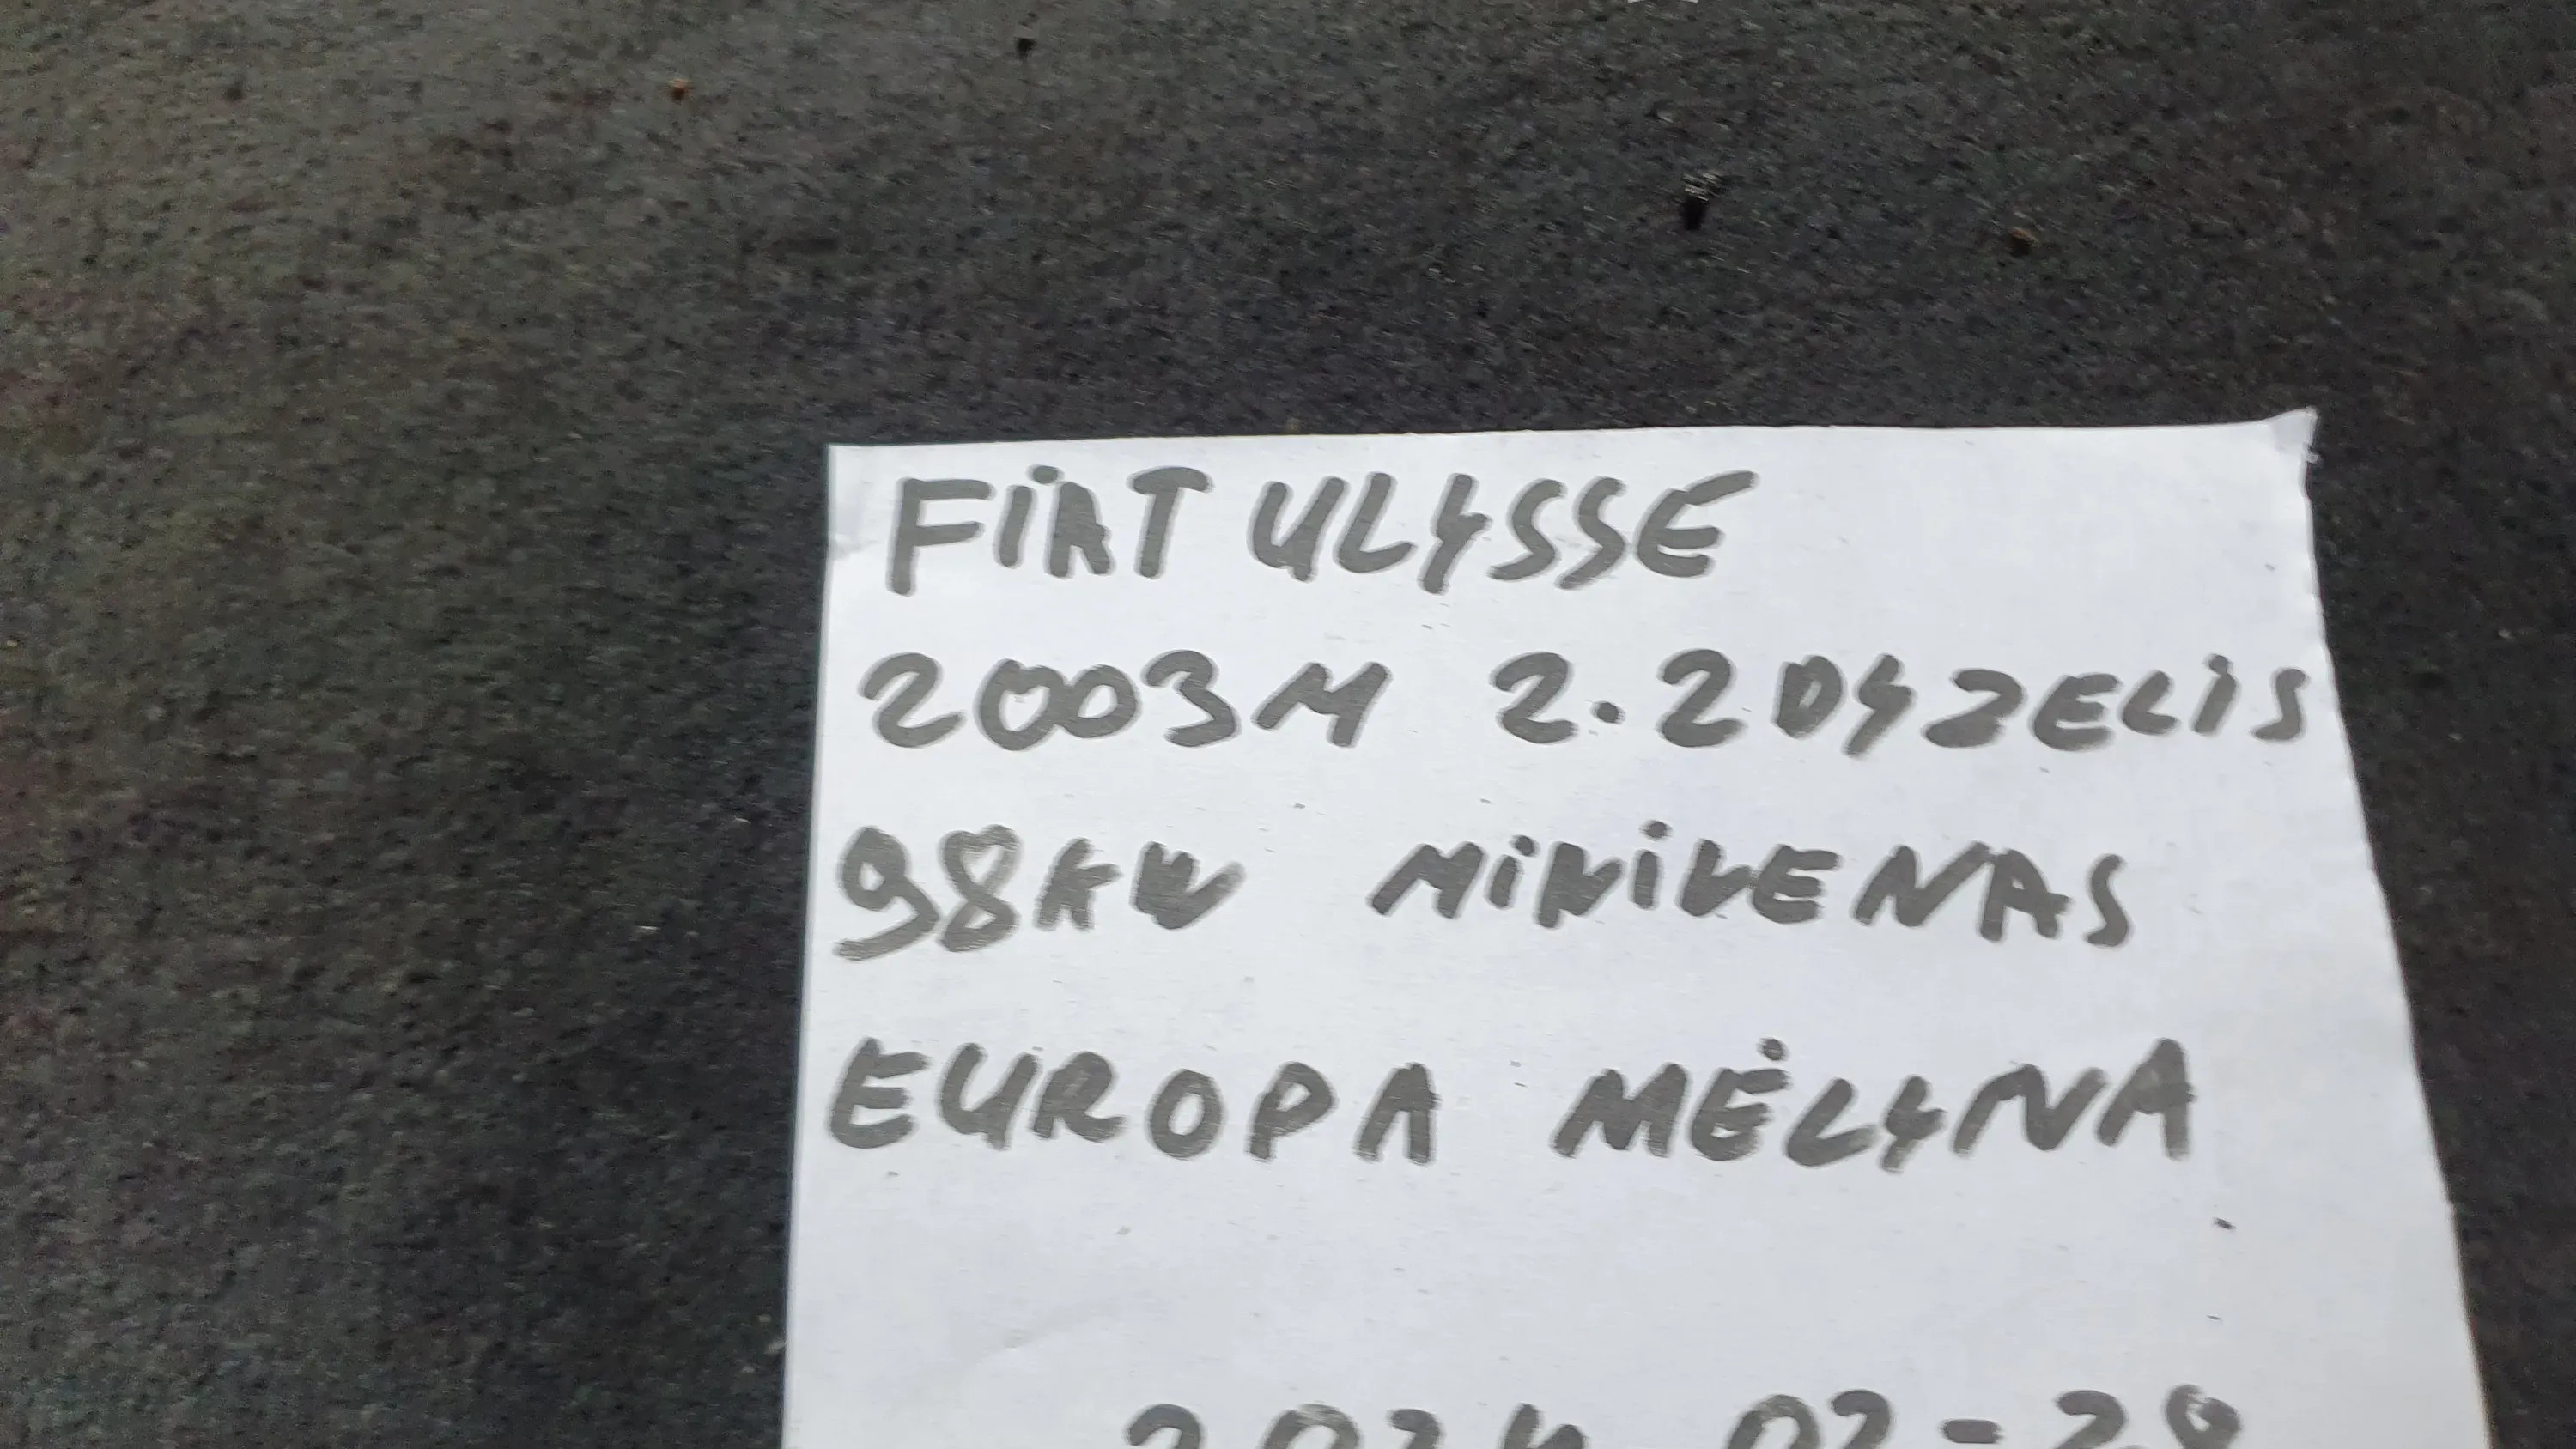 FiAT ULYSSE
2003M 2.2 DYZELiS
98KW MiNiVENAS
EUROPA MĖLYNA